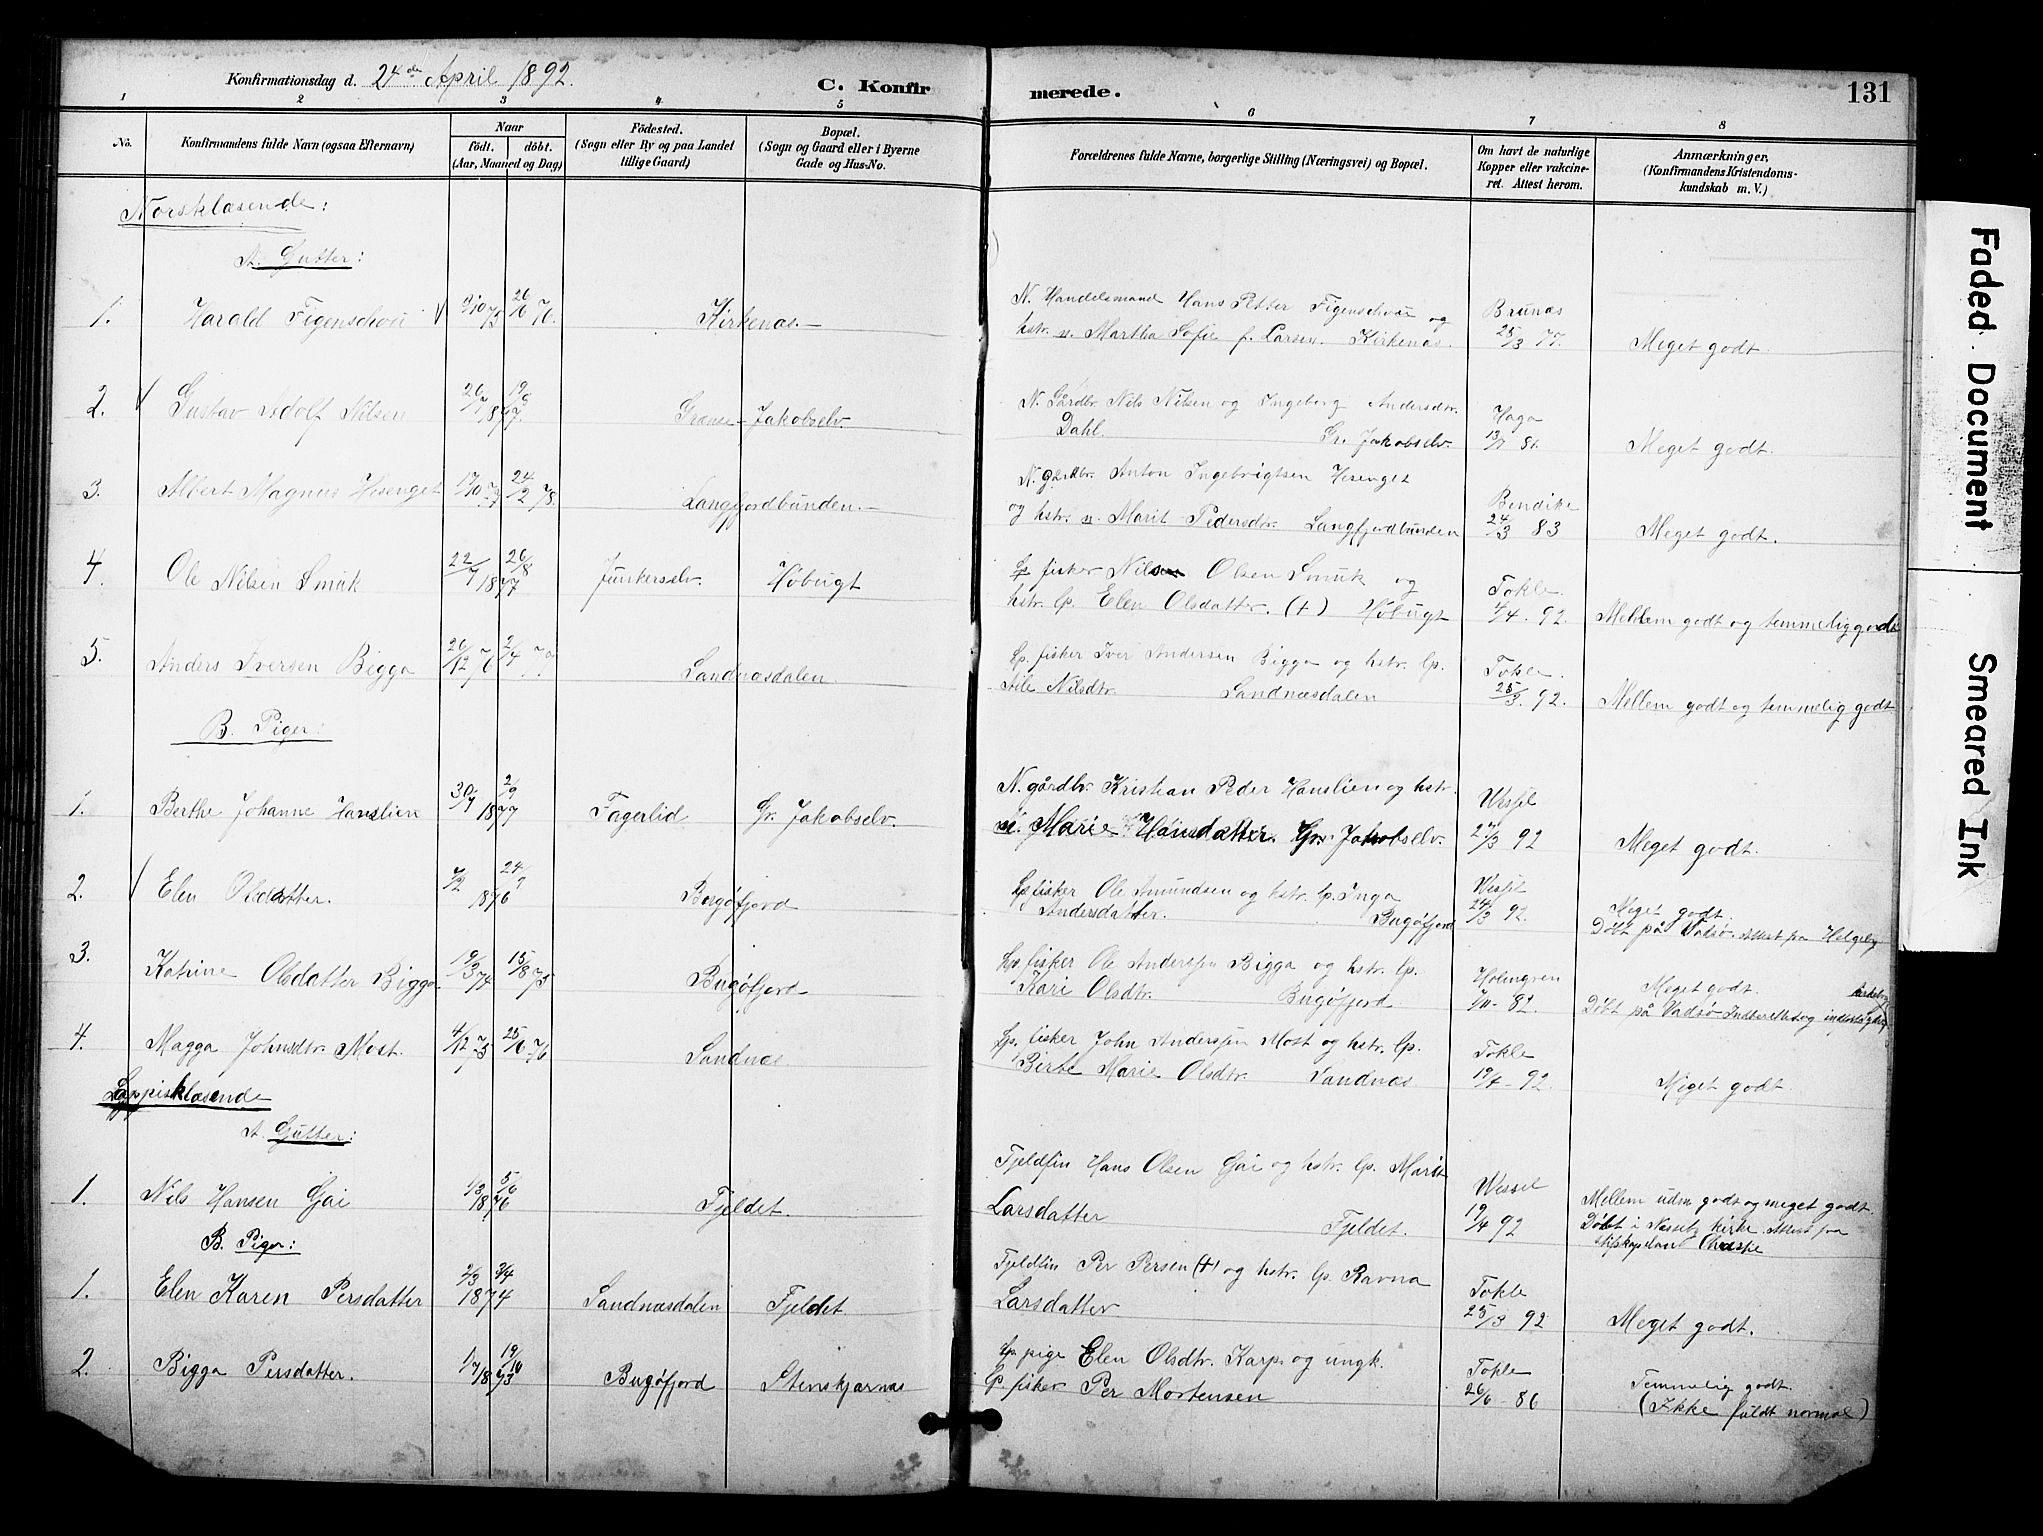 Konfirmationsdag d. 24de April 1892.
C. Konfirmerede.
131
1 2 3 4 5 6 7 8
No.
Konfirmandens fulde Navn (ogsaa Efternavn)
Naar
födt. döbt.
(Aar, Maaned og Dag)
Födested.
(Sogn eller By og paa Landet tillige Gaard)
Bopæl.
(Sogn og Gaard eller i Byerne Gade og Hus-No.
Forældrenes fulde Navne, borgerlige Stilling (Næringsvei) og Bopæl.
Om havt de naturlige Kopper eller vakcineret. Attest herom.
Anmærkninger,
(Konfirmandens Kristendomskundskab m. V.)
Norsklæsende:
A. Gutter:
1. Harald Figenschou Kirkenæs.
N. Handelsmand Hans Petter Figenschou og
hstr. n. Martha Sofie f. Larsen. Kirkenæs.
Brunæs 25/3 77.
Meget godt.
2. Gustav Adolf Nilsen Grænse-Jakobselv.
N. Gårdbr. Nils Nilsen og Ingeborg Andersdtr.
Dahl. Gr. Jakobselv.
Haga 81.
Meget godt.
3. Albert Magnus Hesenget 24/2 78. Langfjordbunden.
N. gårdbr. Anton Ingebrigtsen Hesenget
og hstr. n. Marit Pedersdtr. Langfjordbunden
Bendike 24/3 83
Meget godt.
4. Ole Nilsen Smuk 22/7 26/8 1877 Junkerselv. Høbugt
Lp fisker Nils Olsen Smuk og
hstr. lp. Elen Olsdatter. (+) Høbugt
Tokle 4/4. 92.
Mellem godt og temmelig godt
5. Anders Iversen Bigga 26/12 76 2/4 77. Sandnæsdalen.
Lp. fisker Iver Andersen Bigga og hstr. lp.
Aile Nilsdtr. Sandnæsdalen
Tokle. 25/3. 92.
Mellem godt og temmelig godt
B. Piger:
1. Berthe Johanne Hanslien 30/7 2/9 1877 Fagerlid Gr. Jakobselv.
N. gårdbr. Kristian Peder Hanslien og hstr.
n. Marie Hansdatter. Gr. Jakobselv.
Wessel 92
Meget godt.
2. Elen Olsdatter. 1876 Bugøfjord
Lp fisker Ole Amundsen og hstr. lp. Inga
Andersdatter. Bugøfjord
Wessel 24/3 92.
Meget godt.
Døbt på Vadsø. Attest fra Helgeby
3. Katrine Olsdatter Bigga 19/3 74 15/8 75 Bugøfjord
Lp. fisker Ole Andersen Bigga og hstr. lp.
Kari Olsdtr. Bugøfjord.
Holmgren 82.
Meget godt.
Døbt på Vadsø
4. Magga Johnsdtr. Most. 4/12 75 25/6 76 Sandnæs
Lp. fisker John Andersen Most og hstr. lp.
Birte Marie Olsdtr. Sandnæs.
Tokle 19/4 - 92.
Meget godt
Lappisklæsende
A. Gutter:
1. Nils Hansen Gai 1/3 5/6 1876 Fjeldet.
Fjeldfin Hans Olsen Gai og hstr. lp. Marit
Larsdatter Fjeldet.
Wessel 19/4 92
Mellem udm. godt og meget godt.
Døbt i kirke. Attest fra
B. Piger:
1. Elen Karen Persdatter 2/3 3/4 1874 Sandnæsdalen Fjeldet
Fjeldfin Per Persen (+) og hstr. lp. Ravna
Larsdatter
Tokle 25/3 92
Meget godt.
2. Bigga Persdatter. Bugøfjord Stenskjærnæs
Lp. pige Elen Olsdtr. Karp. og ungk.
lp. fisker Per Mortensen
Tokle 26/6 - 86
Temmelig godt.
(Ikke fuldt normal)
Faded Document
Smeared Ink